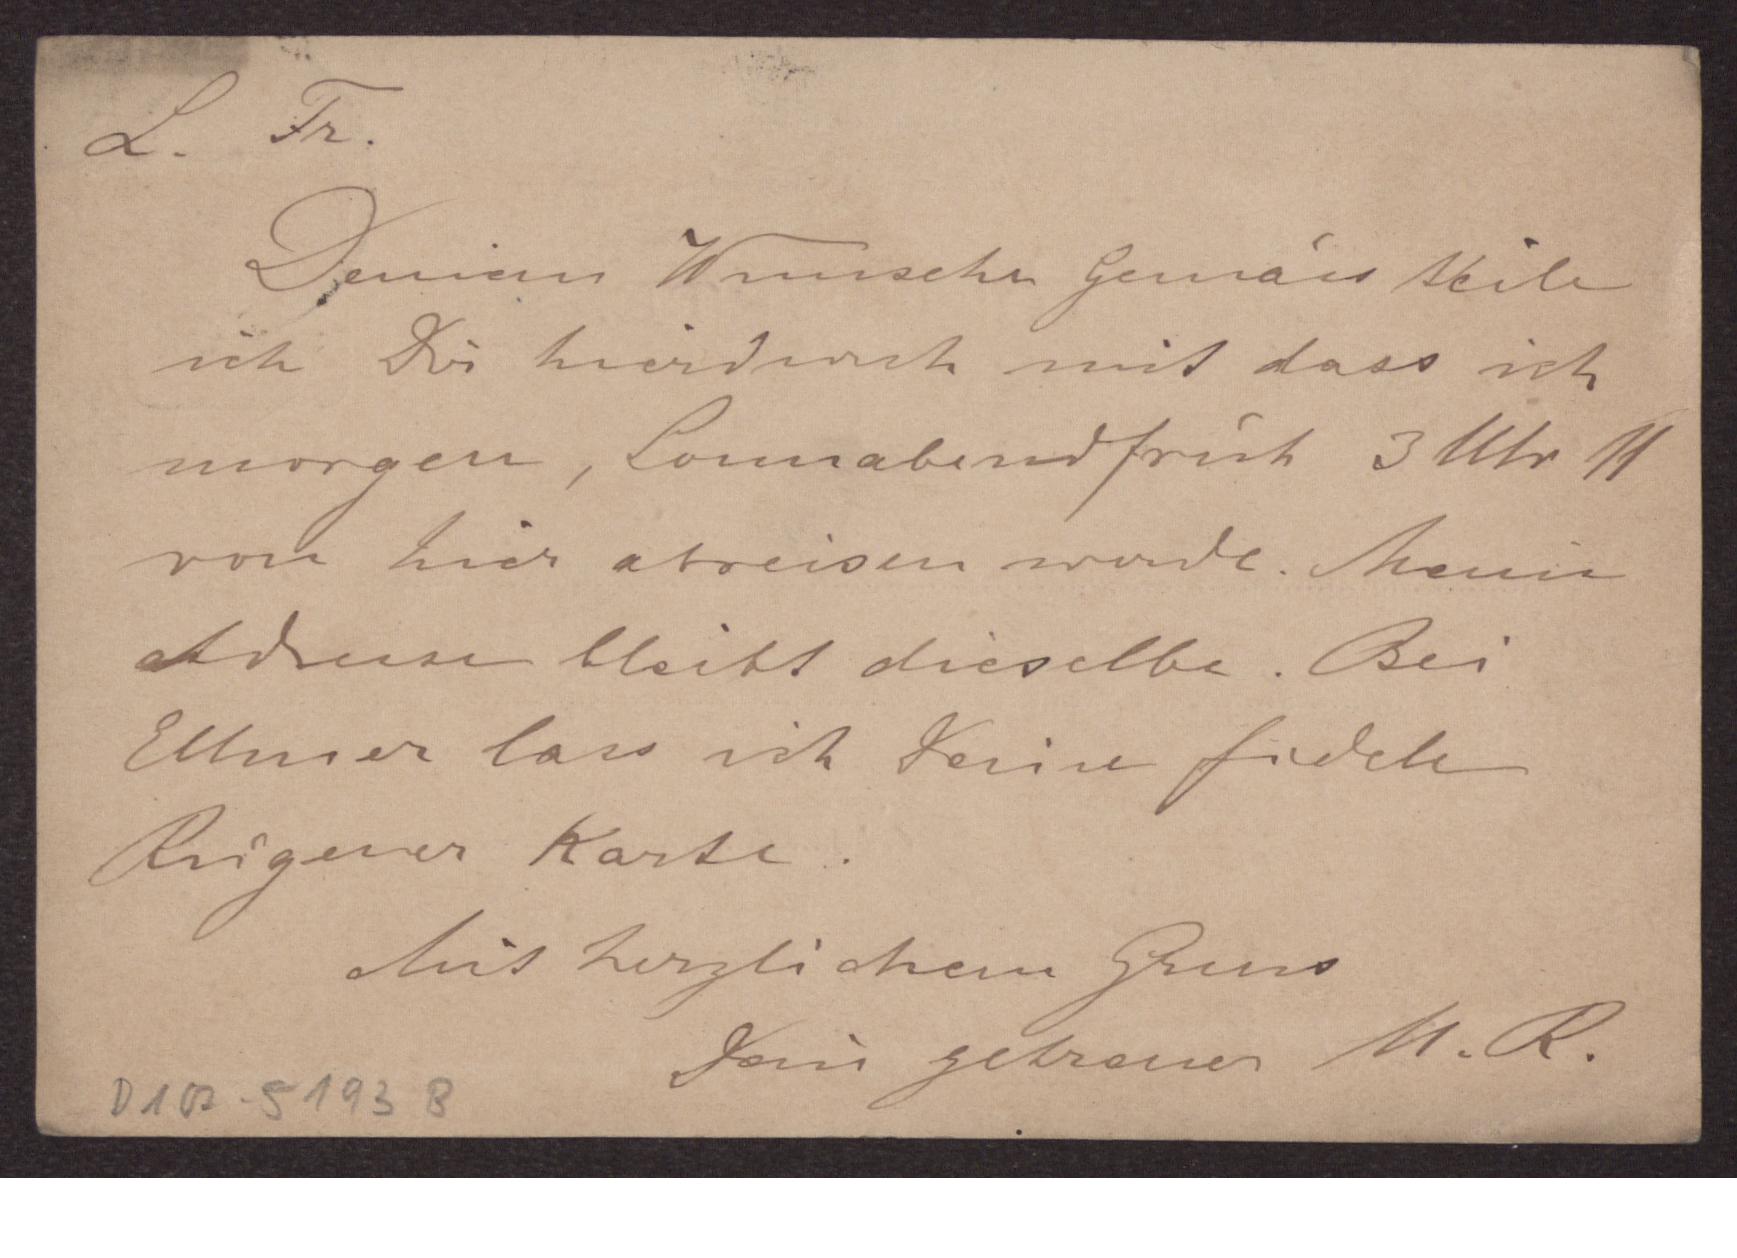 L. Fr.
Deinem Wunsche gemäss teile
ich Dir hierdurch mit dass ich
morgen, Sonnabend früh 3 Uhr 11
von hier abreisen werde. Meine
Adresse bleibt dieselbe. Bei
Ellmer lass ich Deine fidele
Rügener Karte.
Mit herzlichem Gruss
Dein getreuer M. R.
D 102-5193 B